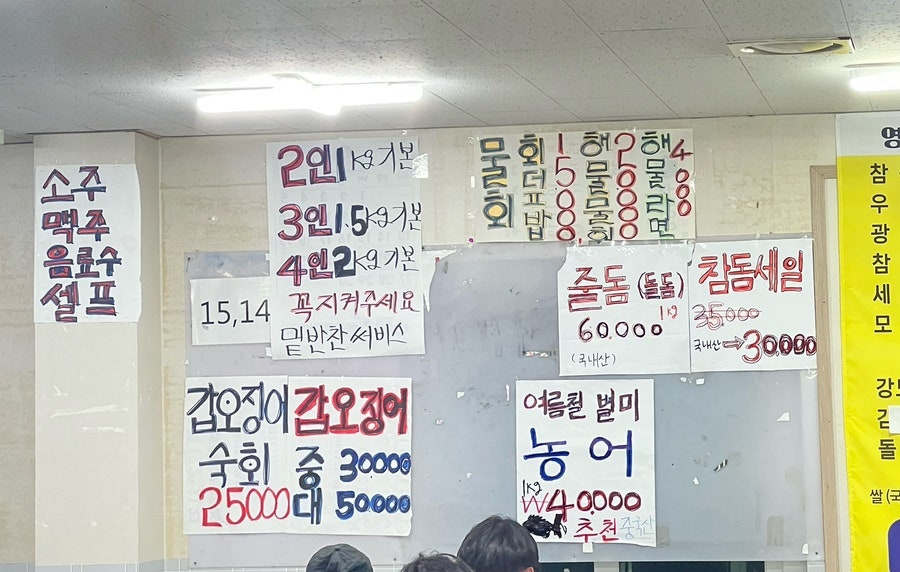 소주
맥주
음료수
셀프
2인 1kg 기본
3인 1.5kg 기본
4인 2kg 기본
꼭 지켜주세요
밑반찬 써비스
15,14
물회
회덮밥
15000
해물물회
20000
해물라면
4000
줄돔 (돌돔)
1kg
60.000
(국내산)
참돔세일
35000
국내산 → 30.000
갑오징어
숙회
25000
갑오징어
중 30000
대 50000
여름철 별미
농어
1kg
₩40.000
추천 중국산
참
우
광
참
세
모
돌
쌀(국